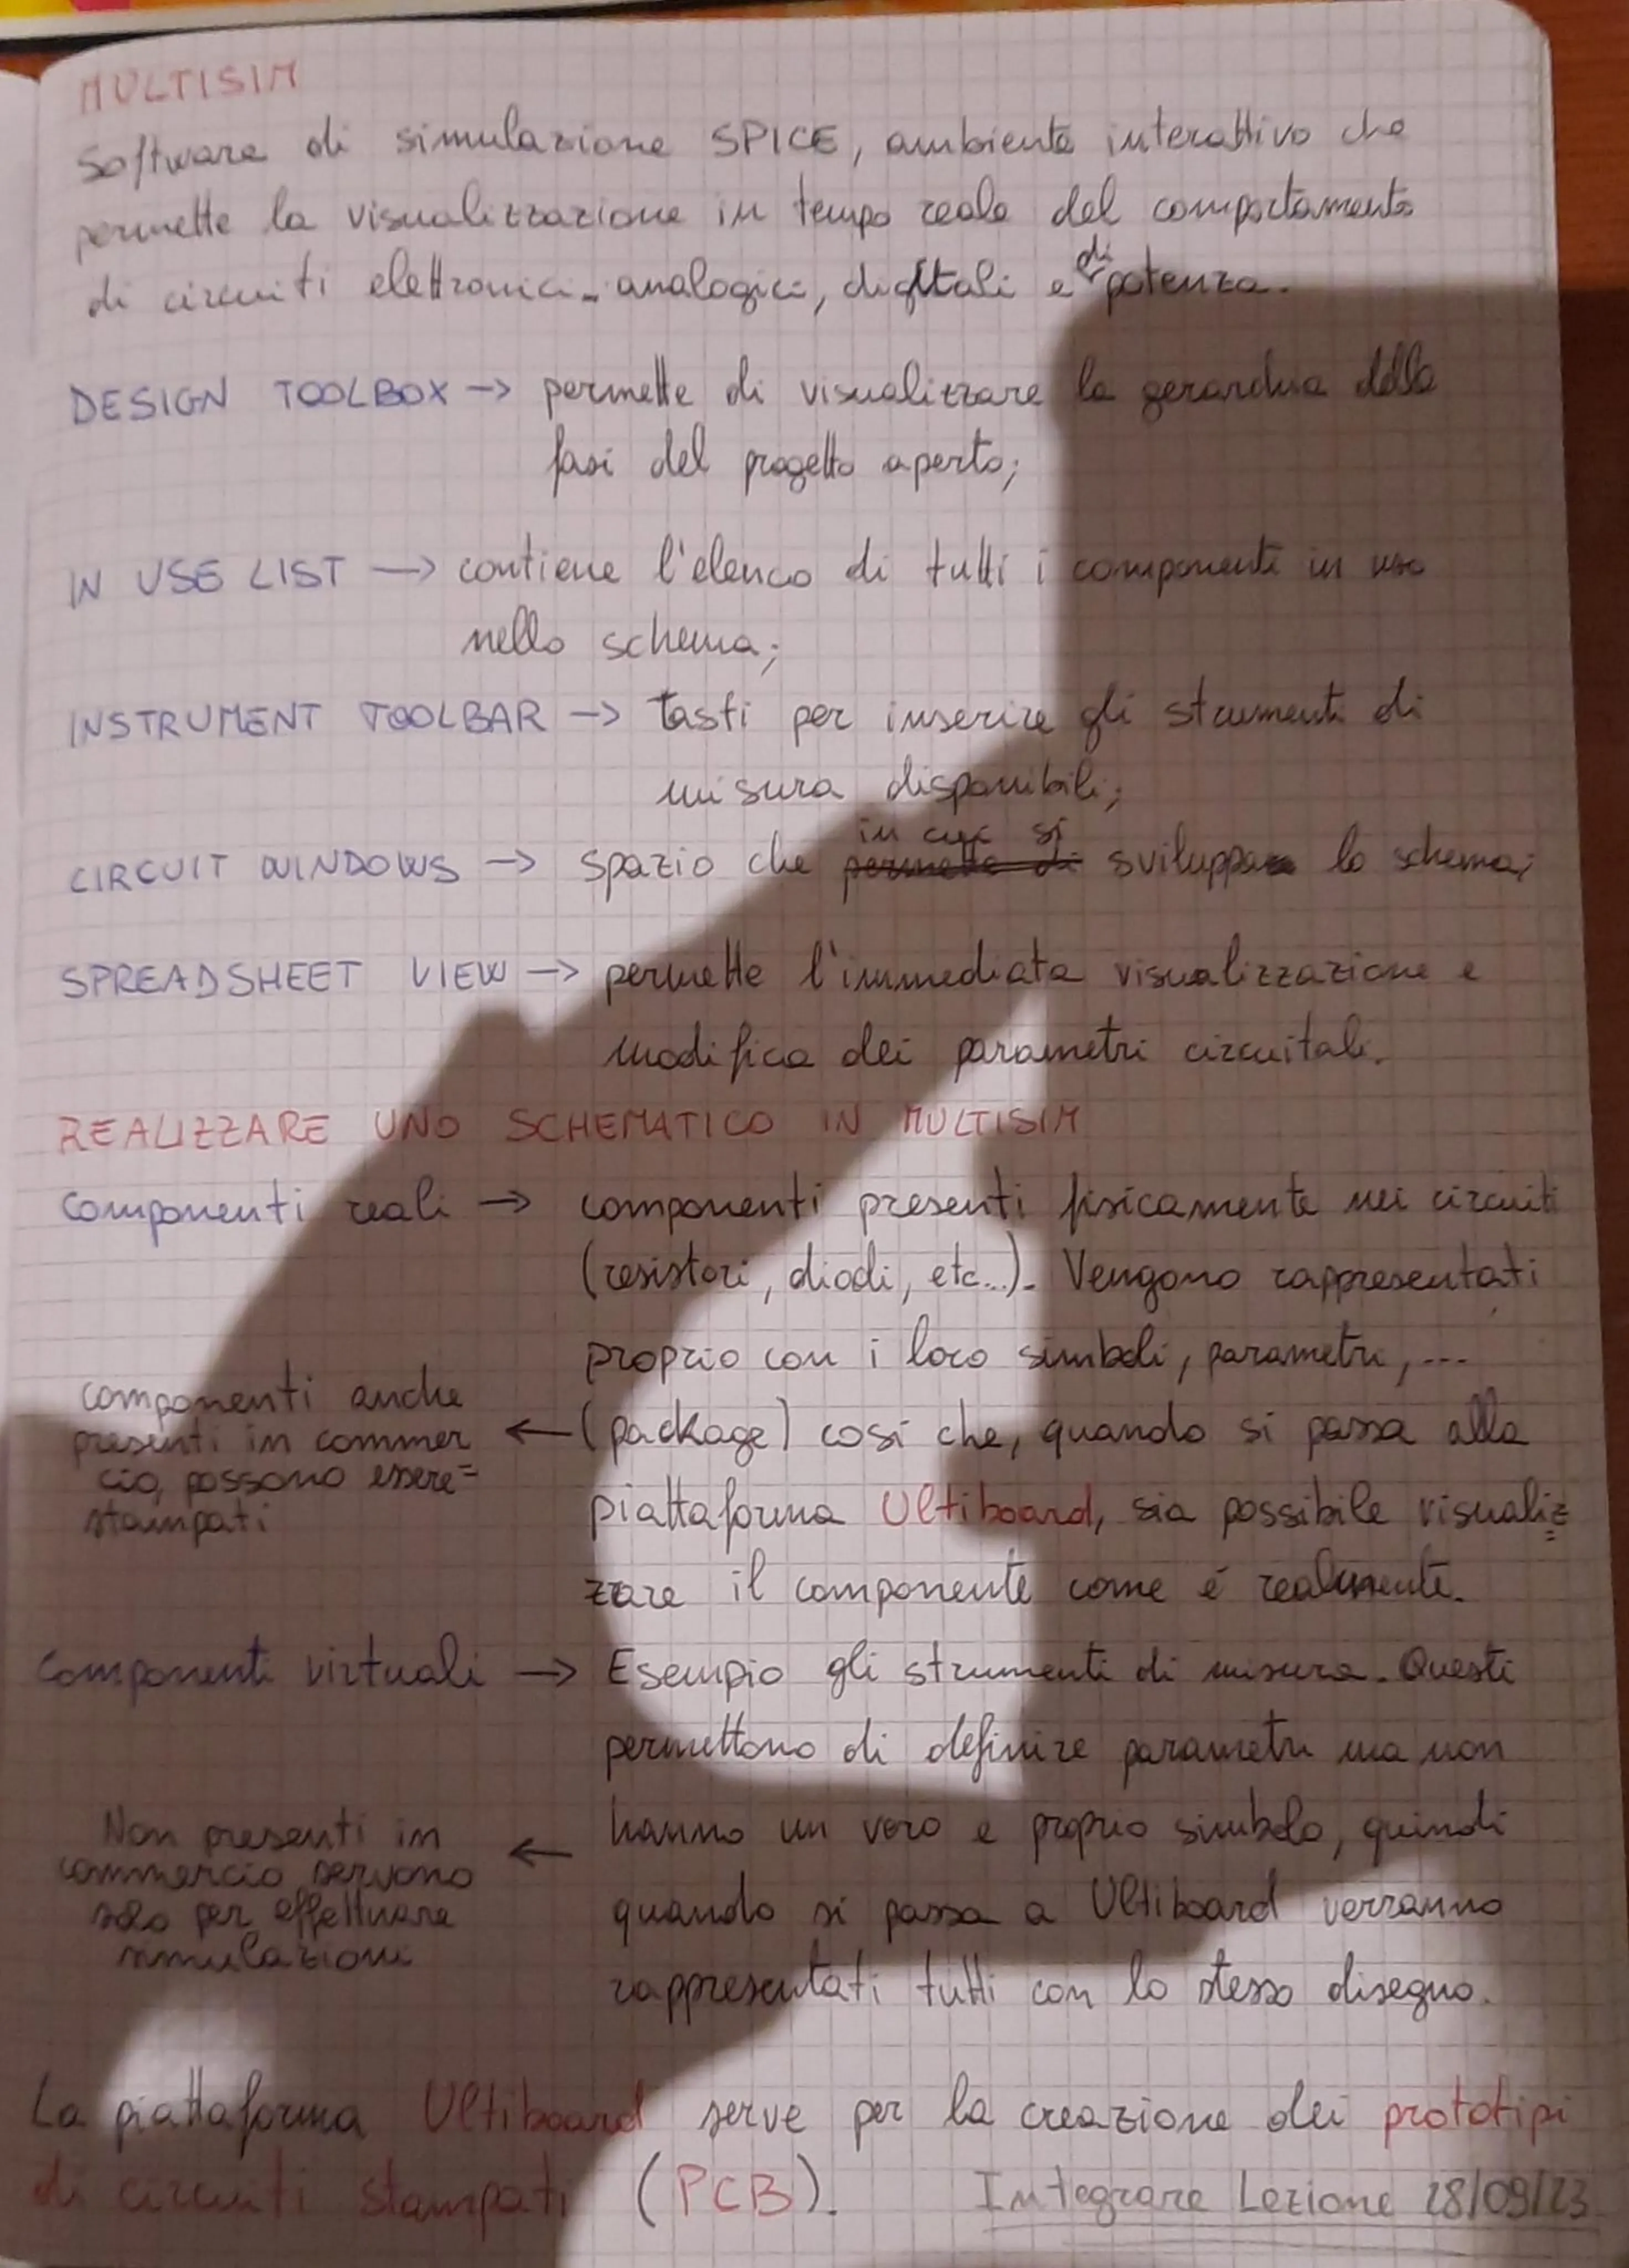 MULTISIM
Software di simulazione SPICE, ambiente interattivo che
permette la visualizzazione in tempo reale del comportamento
di circuiti elettronici analogici, digitali e di potenza.
DESIGN TOOLBOX → permette di visualizzare la gerarchia delle
fasi del progetto aperto;
IN USE LIST → contiene l'elenco di tutti i componenti in uso
nello schema;
INSTRUMENT TOOLBAR → tasti per inserire gli strumenti di
misura disponibili;
CIRCUIT WINDOWS → spazio che permette di in cui si sviluppa lo schema;
SPREADSHEET VIEW → permette l'immediata visualizzazione e
modifica dei parametri circuitali.
REALIZZARE UNO SCHEMATICO IN MULTISIM
Componenti reali → componenti presenti fisicamente nei circuiti
(resistori, diodi, etc...). Vengono rappresentati
proprio con i loro simboli, parametri, ...
(package) così che, quando si passa alla
piattaforma Ultiboard, sia possibile visualiz=
zare il componente come é realmente.
componenti anche
presenti in commer
cio, possono essere=
stampati ←
Componenti virtuali → Esempio gli strumenti di misura. Questi
permettono di definire parametri ma non
hanno un vero e proprio simbolo, quindi
quando si passa a Ultiboard verranno
rappresentati tutti con lo stesso disegno.
Non presenti in
commercio servono
solo per effettuare
simulazioni ←
La piattaforma Ultiboard serve per la creazione dei prototipi
di circuiti stampati (PCB).
Integrare Lezione 28/09/23